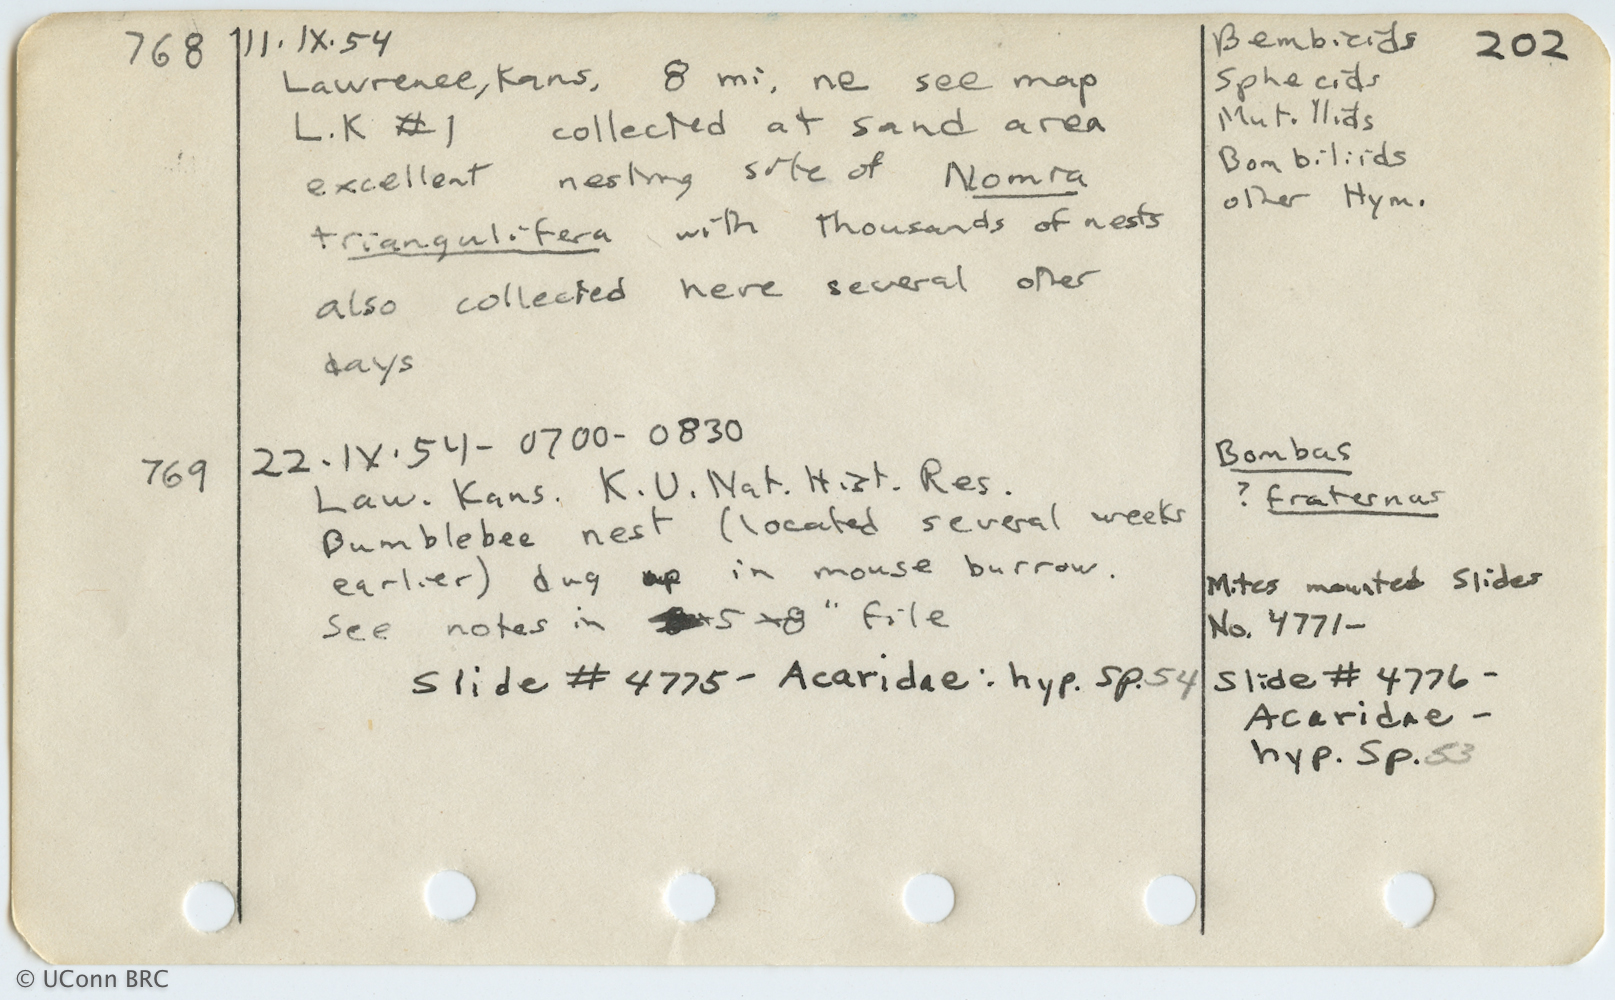 768
11.IX.54
Lawrence, Kans, 8 mi, ne see map
L.K #1 collected at sand area
excellent nesting site of Nomia
triangulifera with thousands of nests
also collected here several other
days
Bembicids 202
Sphecids
Mutillids
Bombiliids
other Hym.
769
22.IX.54- 0700- 0830
Law. Kans. K.U. Nat. Hist. Res.
Bumblebee nest (located several weeks
earlier) dug up in mouse burrow.
See notes in 5 x8" file
Slide # 4775- Acaridae: hyp. Sp.54
Bombus
? fraternus
Mites mounted Slides
No. 4771-
Slide # 4776 -
Acaridae -
hyp. Sp.53
© UConn BRC